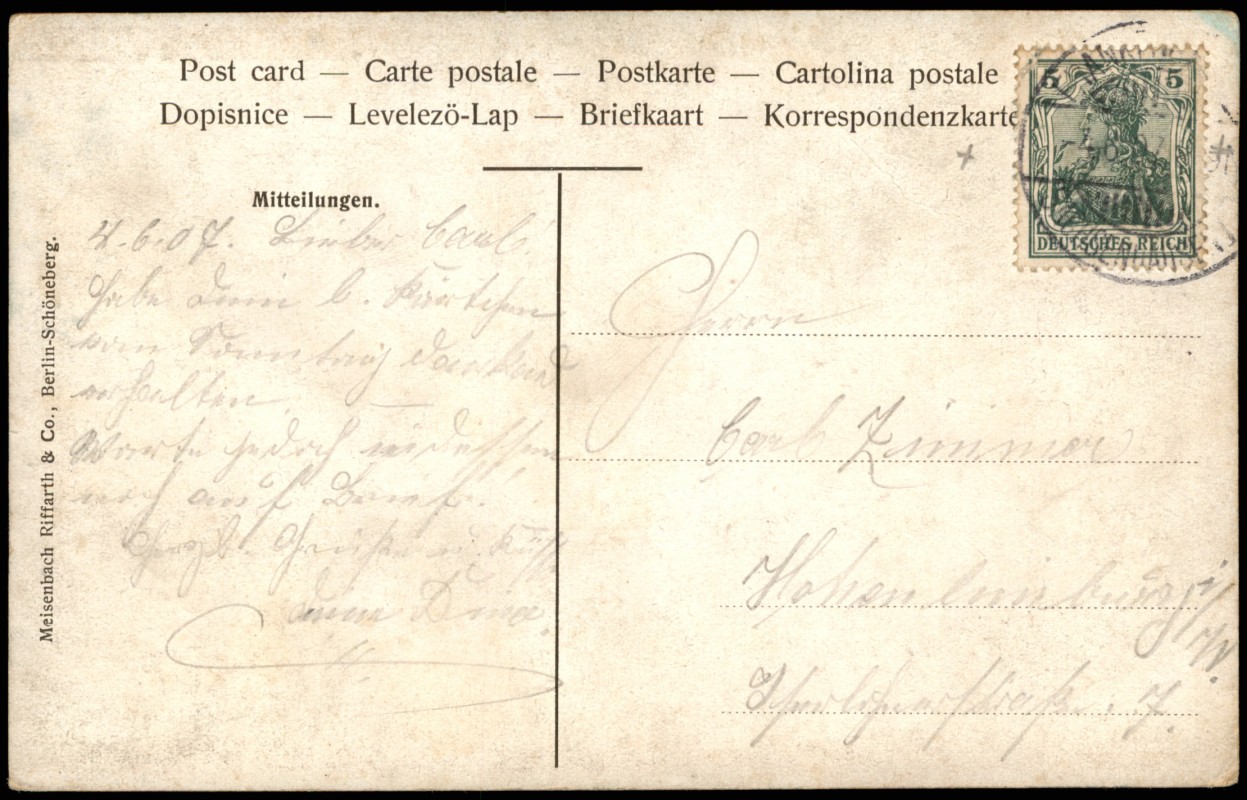 Post card — Carte postale — Postkarte — Cartolina postale
Dopisnice — Levelezö-Lap — Briefkaart — Korrespondenzkarte
5 5
DEUTSCHES REICH
Mitteilungen.
4.6.07. Lieber Carl!
Habe Dein l. Kärtchen
vom Sonntag dankend
erhalten.
Warte jedoch indessen
noch auf Brief.
Herzl. Grüße u. Küsse
Deine
Herrn
Carl Zimmer
Hohenlimburg i/W.
Iserlohnerstraße 7.
Meisenbach Riffarth & Co., Berlin-Schöneberg.